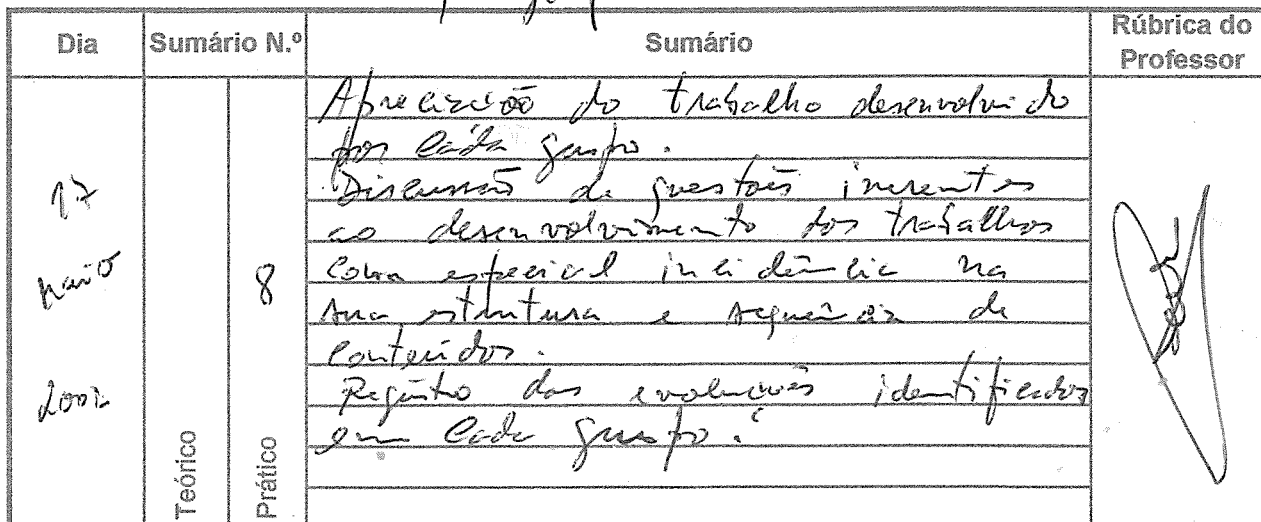 Dia Sumário N.º Sumário Rúbrica do Professor
Apreciação do trabalho desenvolvido
por cada grupo.
Discussão de questões inerentes
ao desenvolvimento dos trabalhos
com especial incidência na
sua estrutura e sequência de
conteúdos.
Registo das evoluções identificadas
em cada grupo.
17
Maio
2002
8
Teórico
Prático